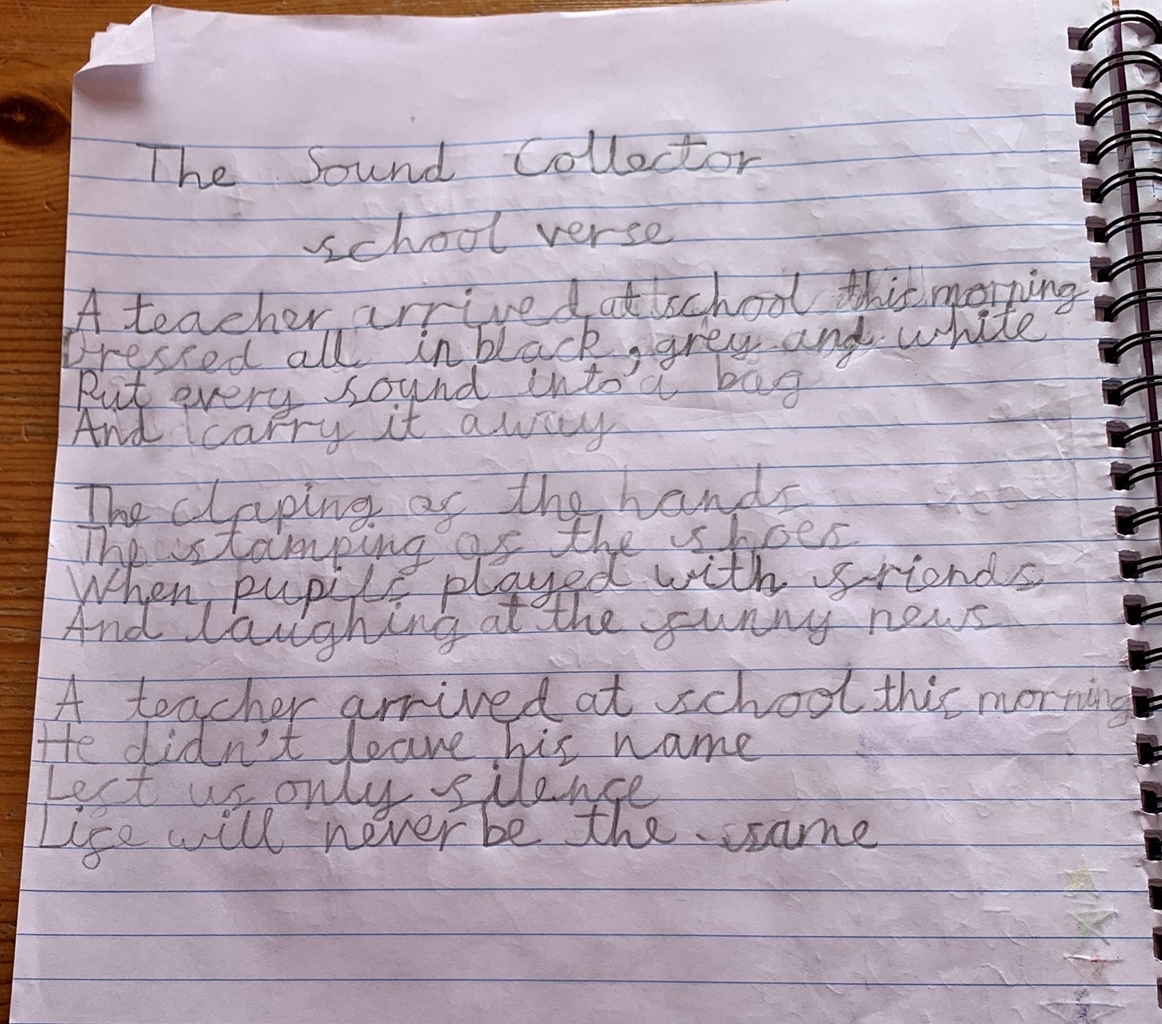 The Sound Collector
school verse
A teacher arrived at school this morning
Dressed all in black, grey and white
Put every sound into a bag
And carry it away
The claping of the hands
The stamping of the shoes
When pupils played with friends
And laughing at the funny news
A teacher arrived at school this morning
He didn't leave his name
Left us only silence
Life will never be the same